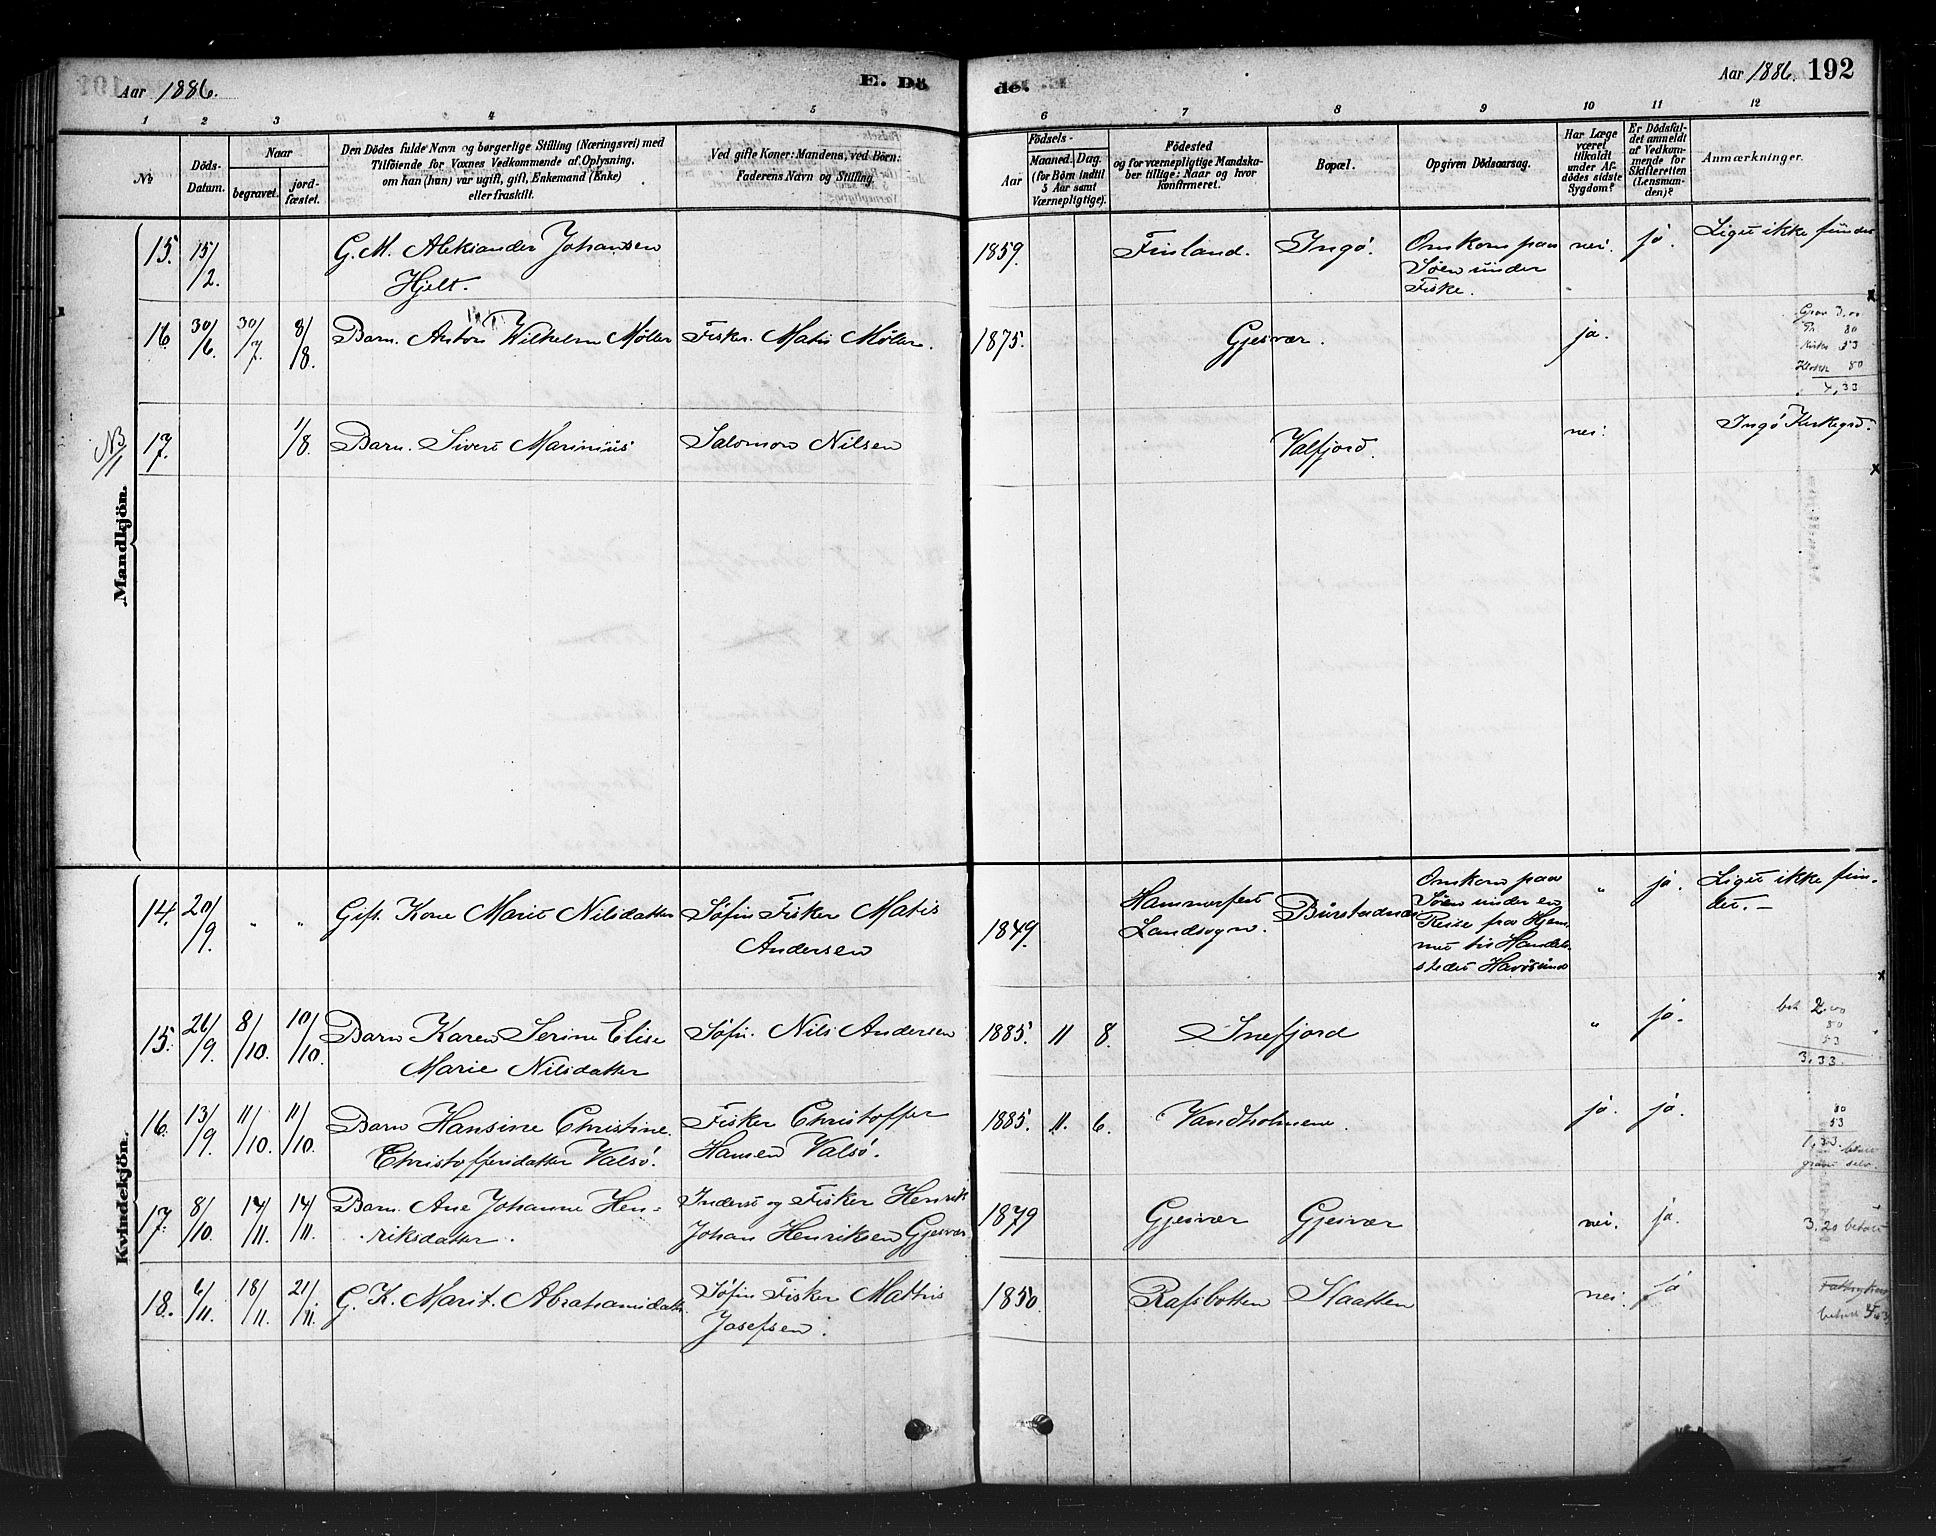 Aar 1886.
E. Dö
de.
Aar 1886. 192
1 2 3 4 5 6 7 8 9 10 11 12
No
Döds-Datum.
Naar
begravet.
jord-fæstet.
Den Dödes fulde Navn og borgerlige Stilling (Næringsvei) med
Tilføiende for Voxnes Vedkommende af Oplysning,
om han (hun) var ugift, gift, Enkemand (Enke)
eller fraskilt.
Ved gifte Koner: Mandens, ved Börn:
Faderens Navn og Stilling.
Födsels-
Aar
Maaned. Dag.
(for Börn indtil
5 Aar samt
Værnepligtige).
Födested
og for værnepligtige Mandska-
ber tillige: Naar og hvor
konfirmeret.
Bopæl.
Opgiven Dödsaarsag.
Har Læge
været
tilkaldt
under Af-
dödes sidste
Sygdom?
Er Dödsfal-
det anmeldt
af Vedkom-
mende for
Skifteretten
(Lensman-
den)?
Anmærkninger.
Mandkjön.
15. 15/2. G. M. Aleksander Johansen
Hjelt.
1859. Finland. Ingø. Omkom paa
Søen under
Fiske.
nei. ja. Liget ikke fundet
16. 30/6 30/7 8/8. Barn. Anton Wilhelm Møller Fisker. Matis Møller.
1875. Gjesvær. ja.
Grav 3,00
80
53
Klokk 80
4,33
NB
17. 1/8. Barn. Sivert Marinius Salomon Nilsen
Valfjord. nei. Ingø Kirkegrd.
Kvindekjön.
14. 20/9 " " Gift Kone Marit Nilsdatter Søfin Fisker Matis
Andersen
1849. Hammerfest
Landsogn. Burstadnes
Omkom paa
Søen under en
Reise fra Hjem-
met til Handels-
stedet Havøsund
" ja. Liget ikke fun-
det. –
15. 26/9 8/10 10/10. Barn Karen Serine Elise
Marie Nilsdatter
Søfin. Nils Andersen
1885. 11 8. Snefjord " ja.
bet 2.00
80
53
3,33.
16. 13/9. 11/10. 11/10. Barn Hansine Christine
Christoffersdatter Valsø.
Fisker Christoffer
Hansen Valsø.
1885. 11. 6. Vandholmene. ja. ja.
80
53
1,33. betalt
grav selv.
17. 8/10 14/11. 14/11. Barn. Ane Johanne Hen-
riksdatter.
Inderst og Fisker Henrik
Johan Henriksen Gjesvær
1879 Gjesvær Gjesvær nei. ja. 3.20 betalt
18. 6/11. 18/11. 21/11. G. K. Marit. Abrahamsdatter. Søfin Fisker Mathis
Josefsen.
1850. Rafsbotten Skaatten nei. ja